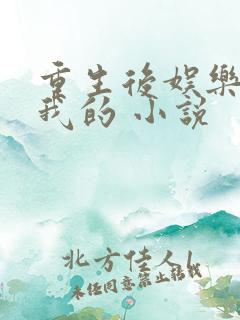 重生後娛樂
我的小說
北方佳人l
未经同意禁止转载